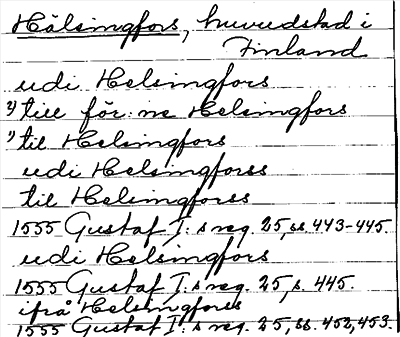 Hälsingfors, huvudstad i
Finland
udi Helsingfors
2) till för:ne Helsingfors
1) til Helsingfors
udi Helsingforss
til Helsingforss
1555 Gustaf I:s reg. 25, ss. 443-445.
udi Helsingfors
1555 Gustaf I:s reg. 25, s. 445.
ifrå Helsingfors
1555 Gustaf I:s reg. 25, ss. 452, 453.